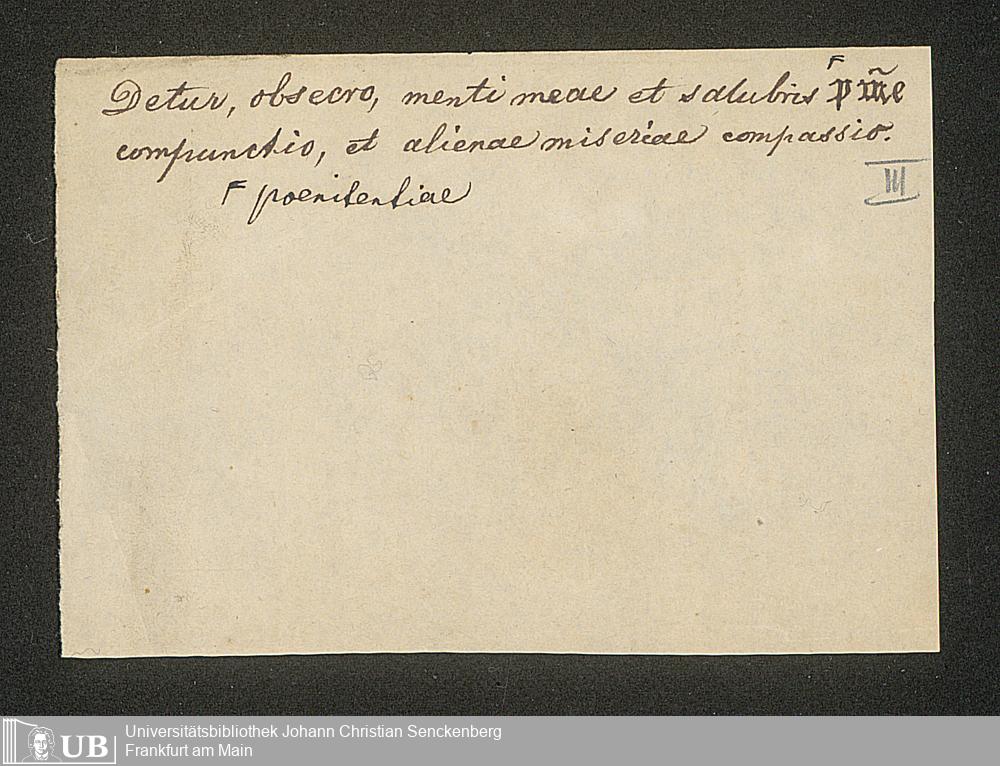 Detur, obsecro, menti meae et salubris ⌜p m̃e
compunctio, et alienae miseriae compassio.
⌜ poenitentiae
III
UB
Universitätsbibliothek Johann Christian Senckenberg
Frankfurt am Main